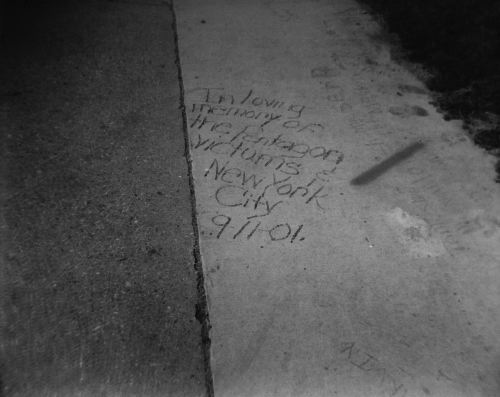 In loving
memory of
the Pentagon
victums &
New York
City
9/11-01.